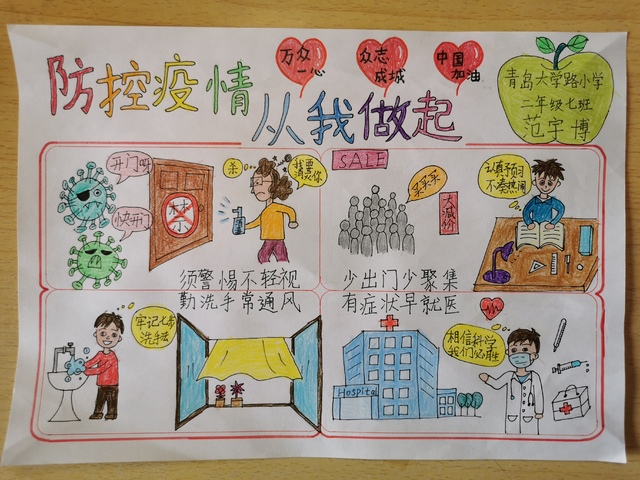 防控疫情
从我做起
万众
一心
众志
成城
中国
加油
青岛大学路小学
二年级七班
范宇博
开门呀
快开门
禁
杀
我要
消灭你
SALE
买买买
大减价
认真予习
不凑热闹
须警惕不轻视
勤洗手常通风
少出门少聚集
有症状早就医
牢记七步
洗手法
Hospital
相信科学
我们必胜